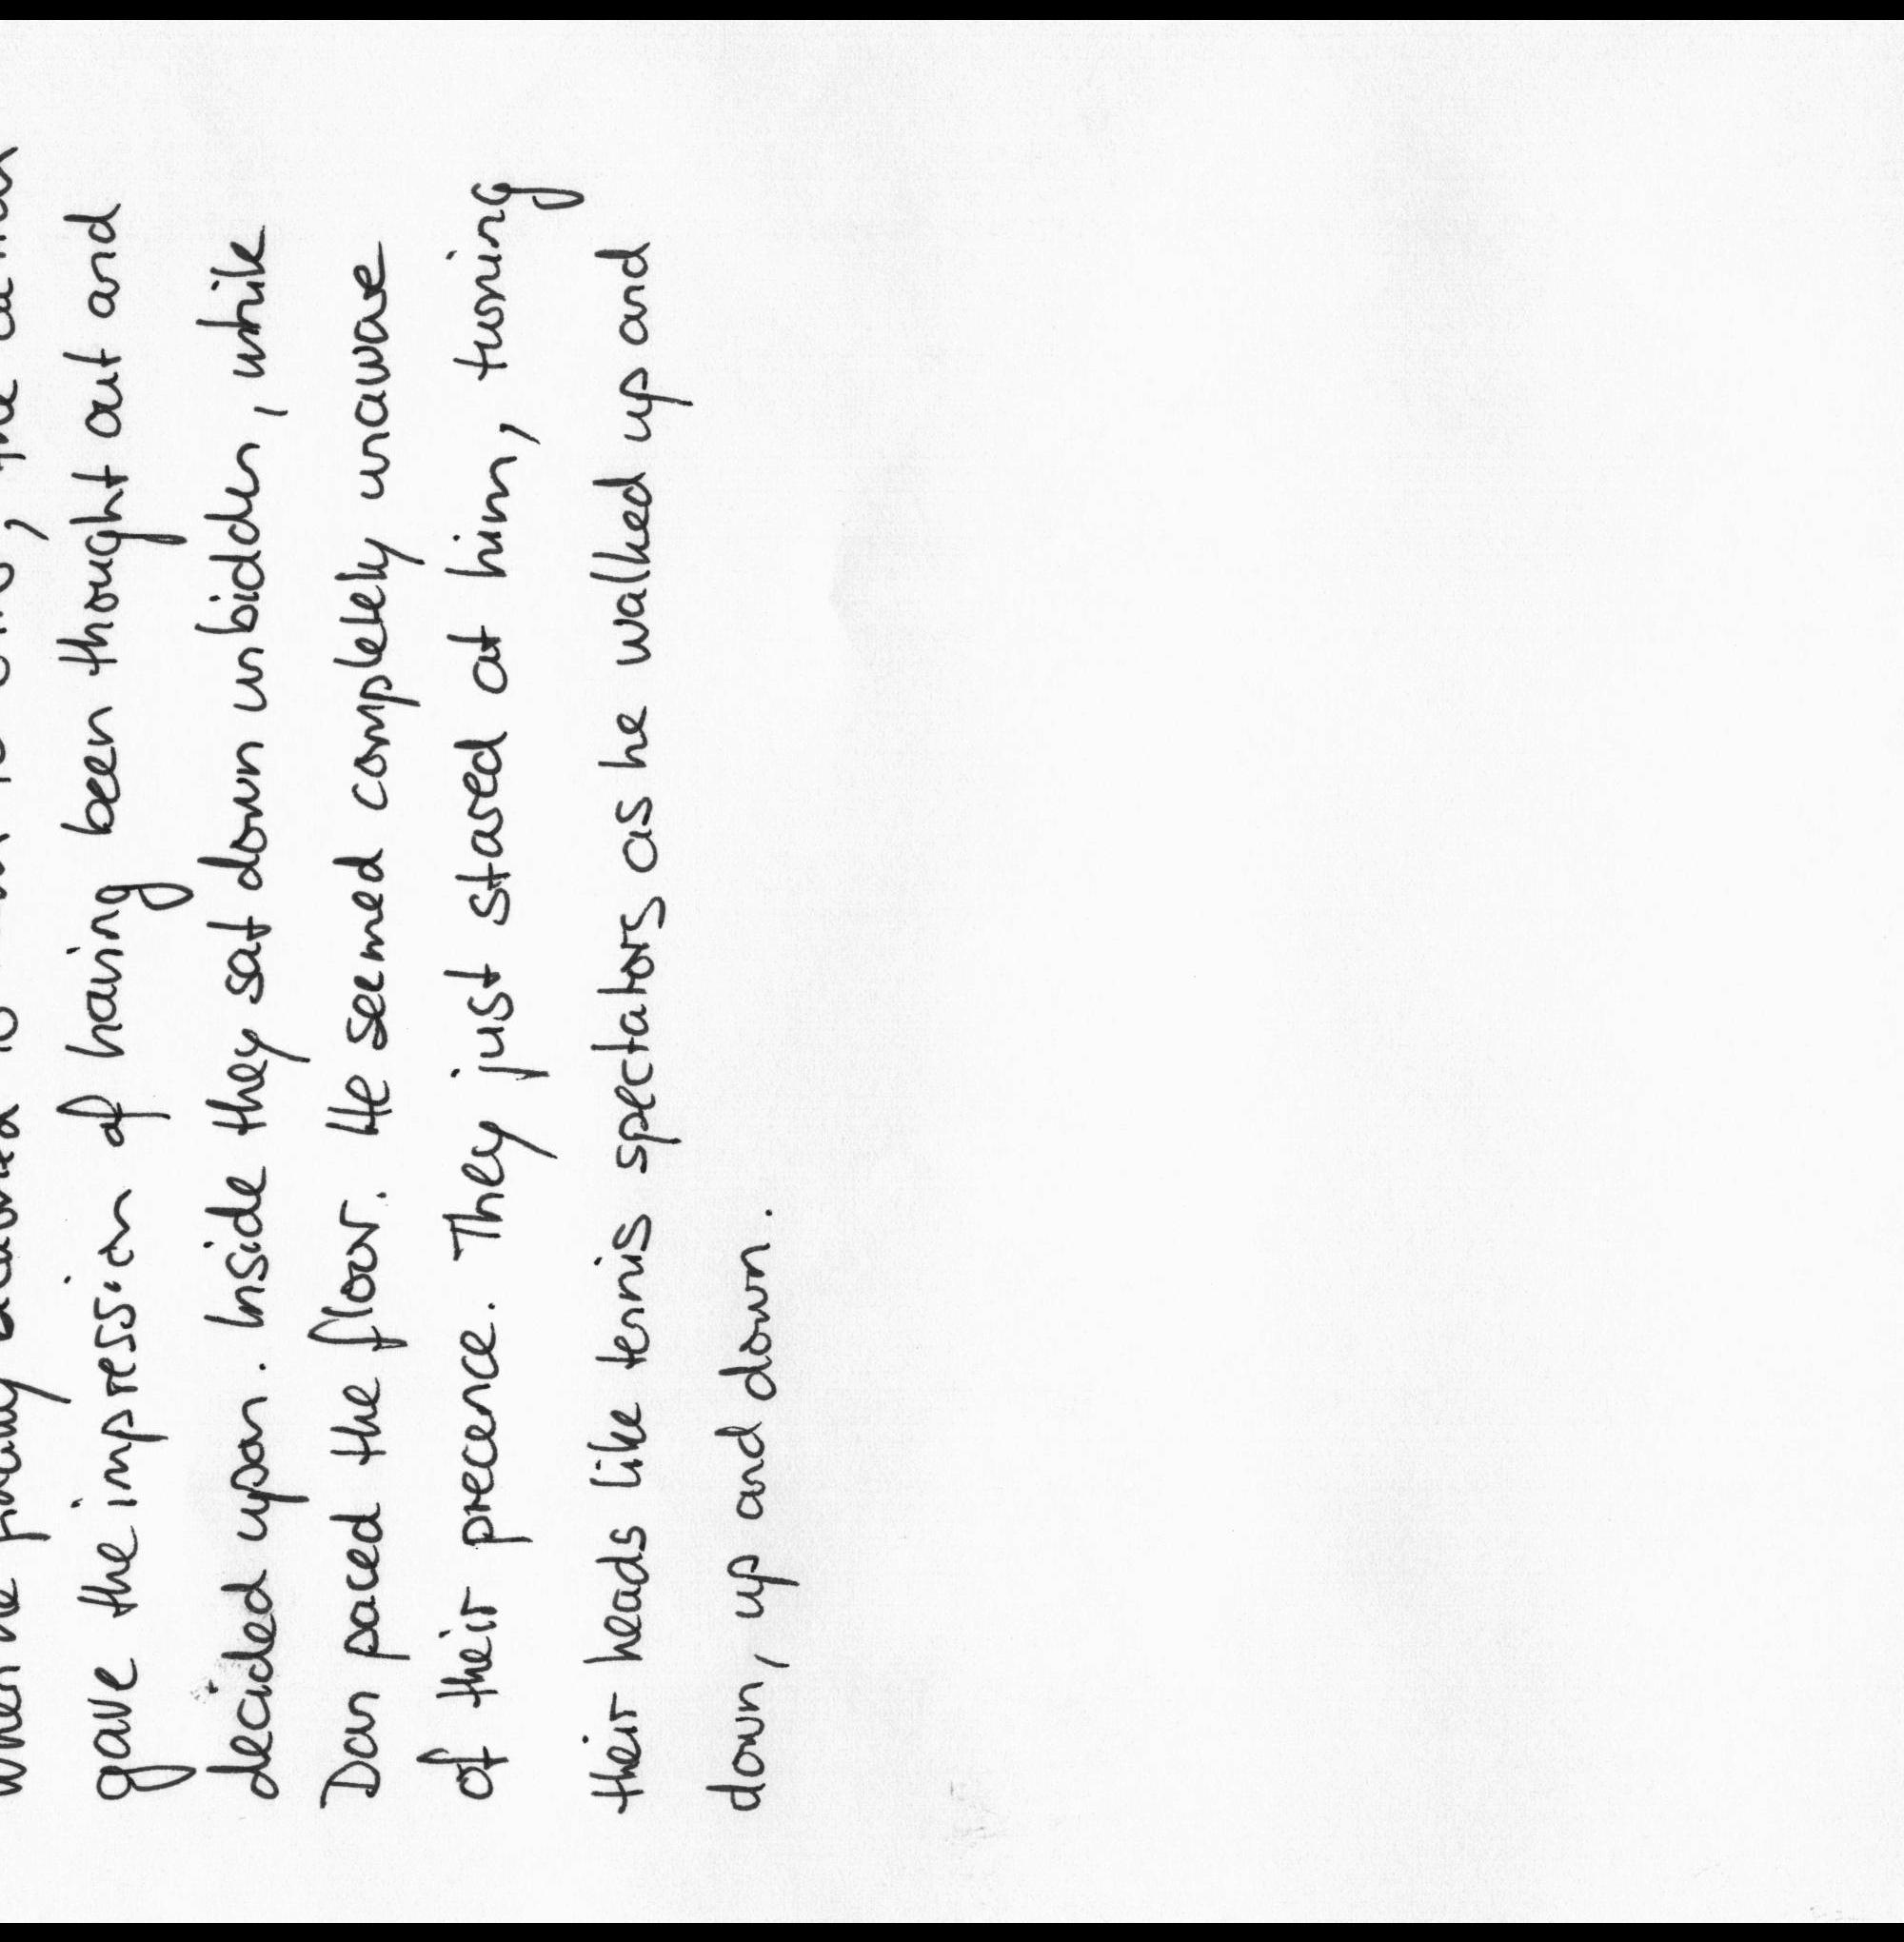 when he finally to
gave the impression of having been thought out and
decided upon. Inside they sat down unbidden, while
Dan paced the floor. He seemed completely unaware
of their precence. They just stared at him, turning
their heads like tennis spectators as he walked up and
down, up and down.